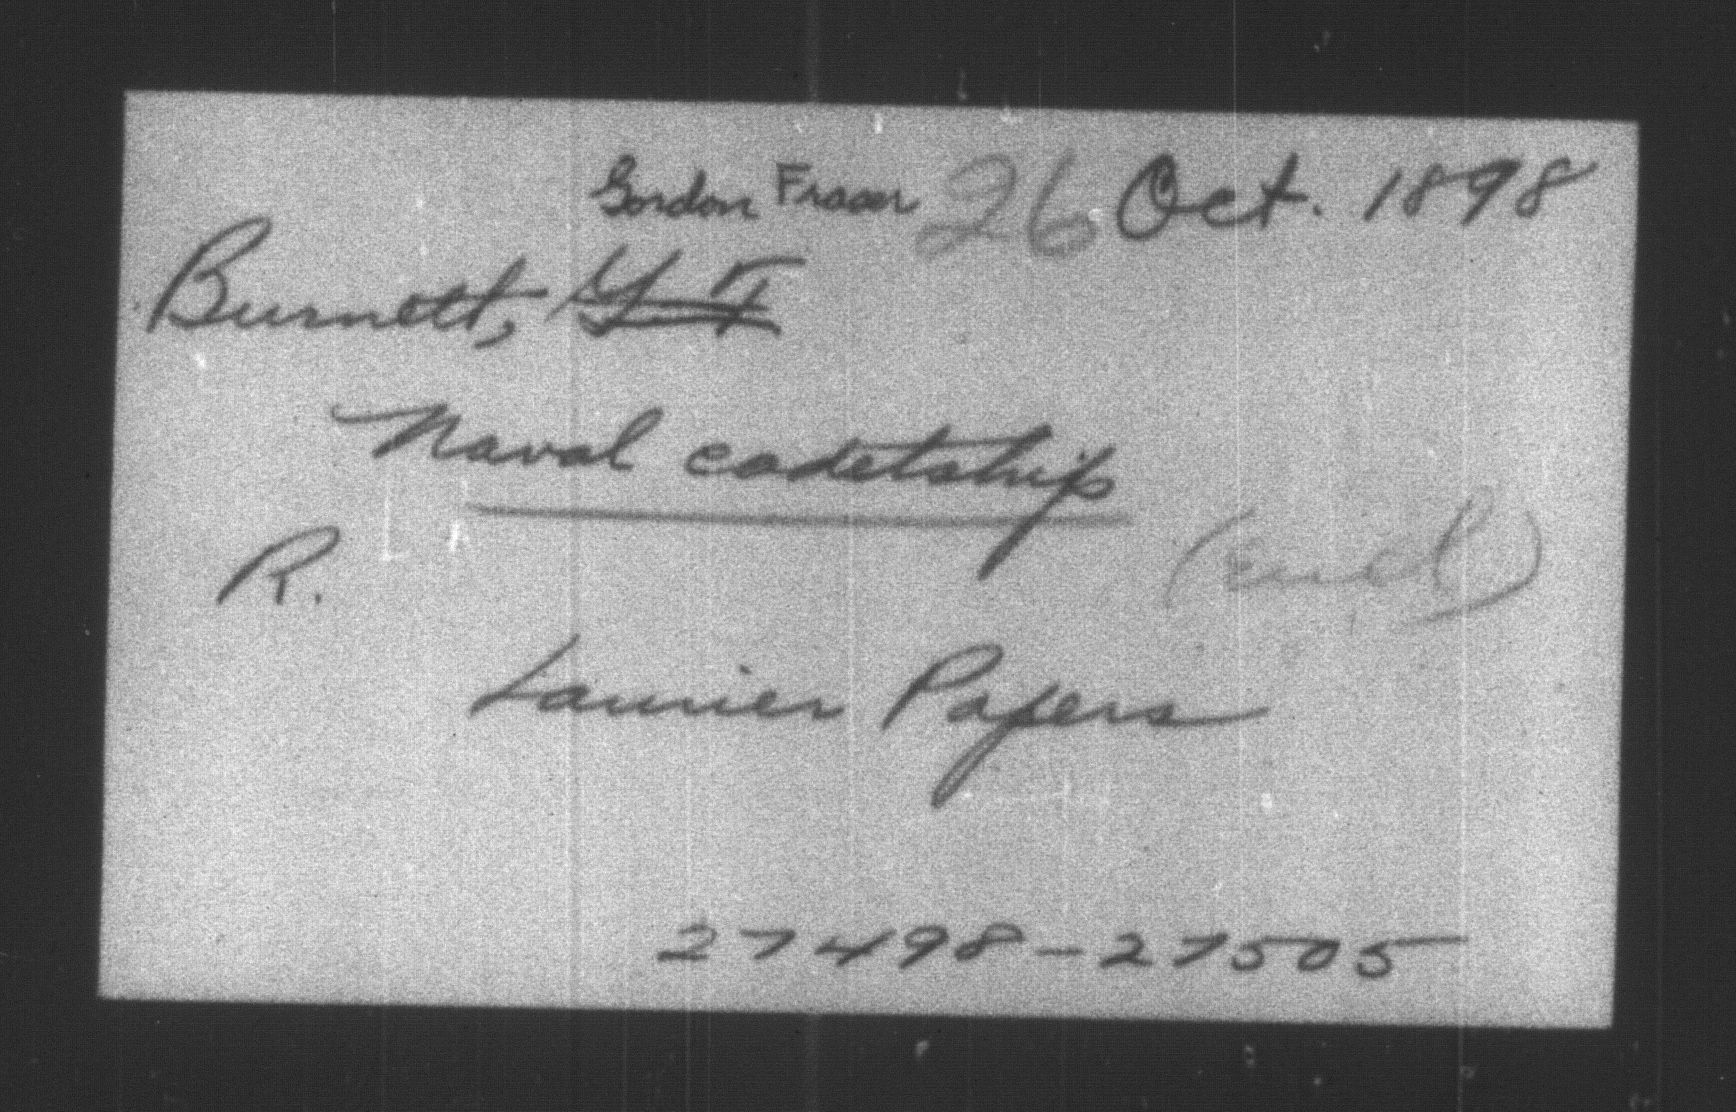 Gordon Fraser 26 Oct. 1898
Burnett, G F
Naval cadetship
R. (encl)
Laurier Papers
27498-27505